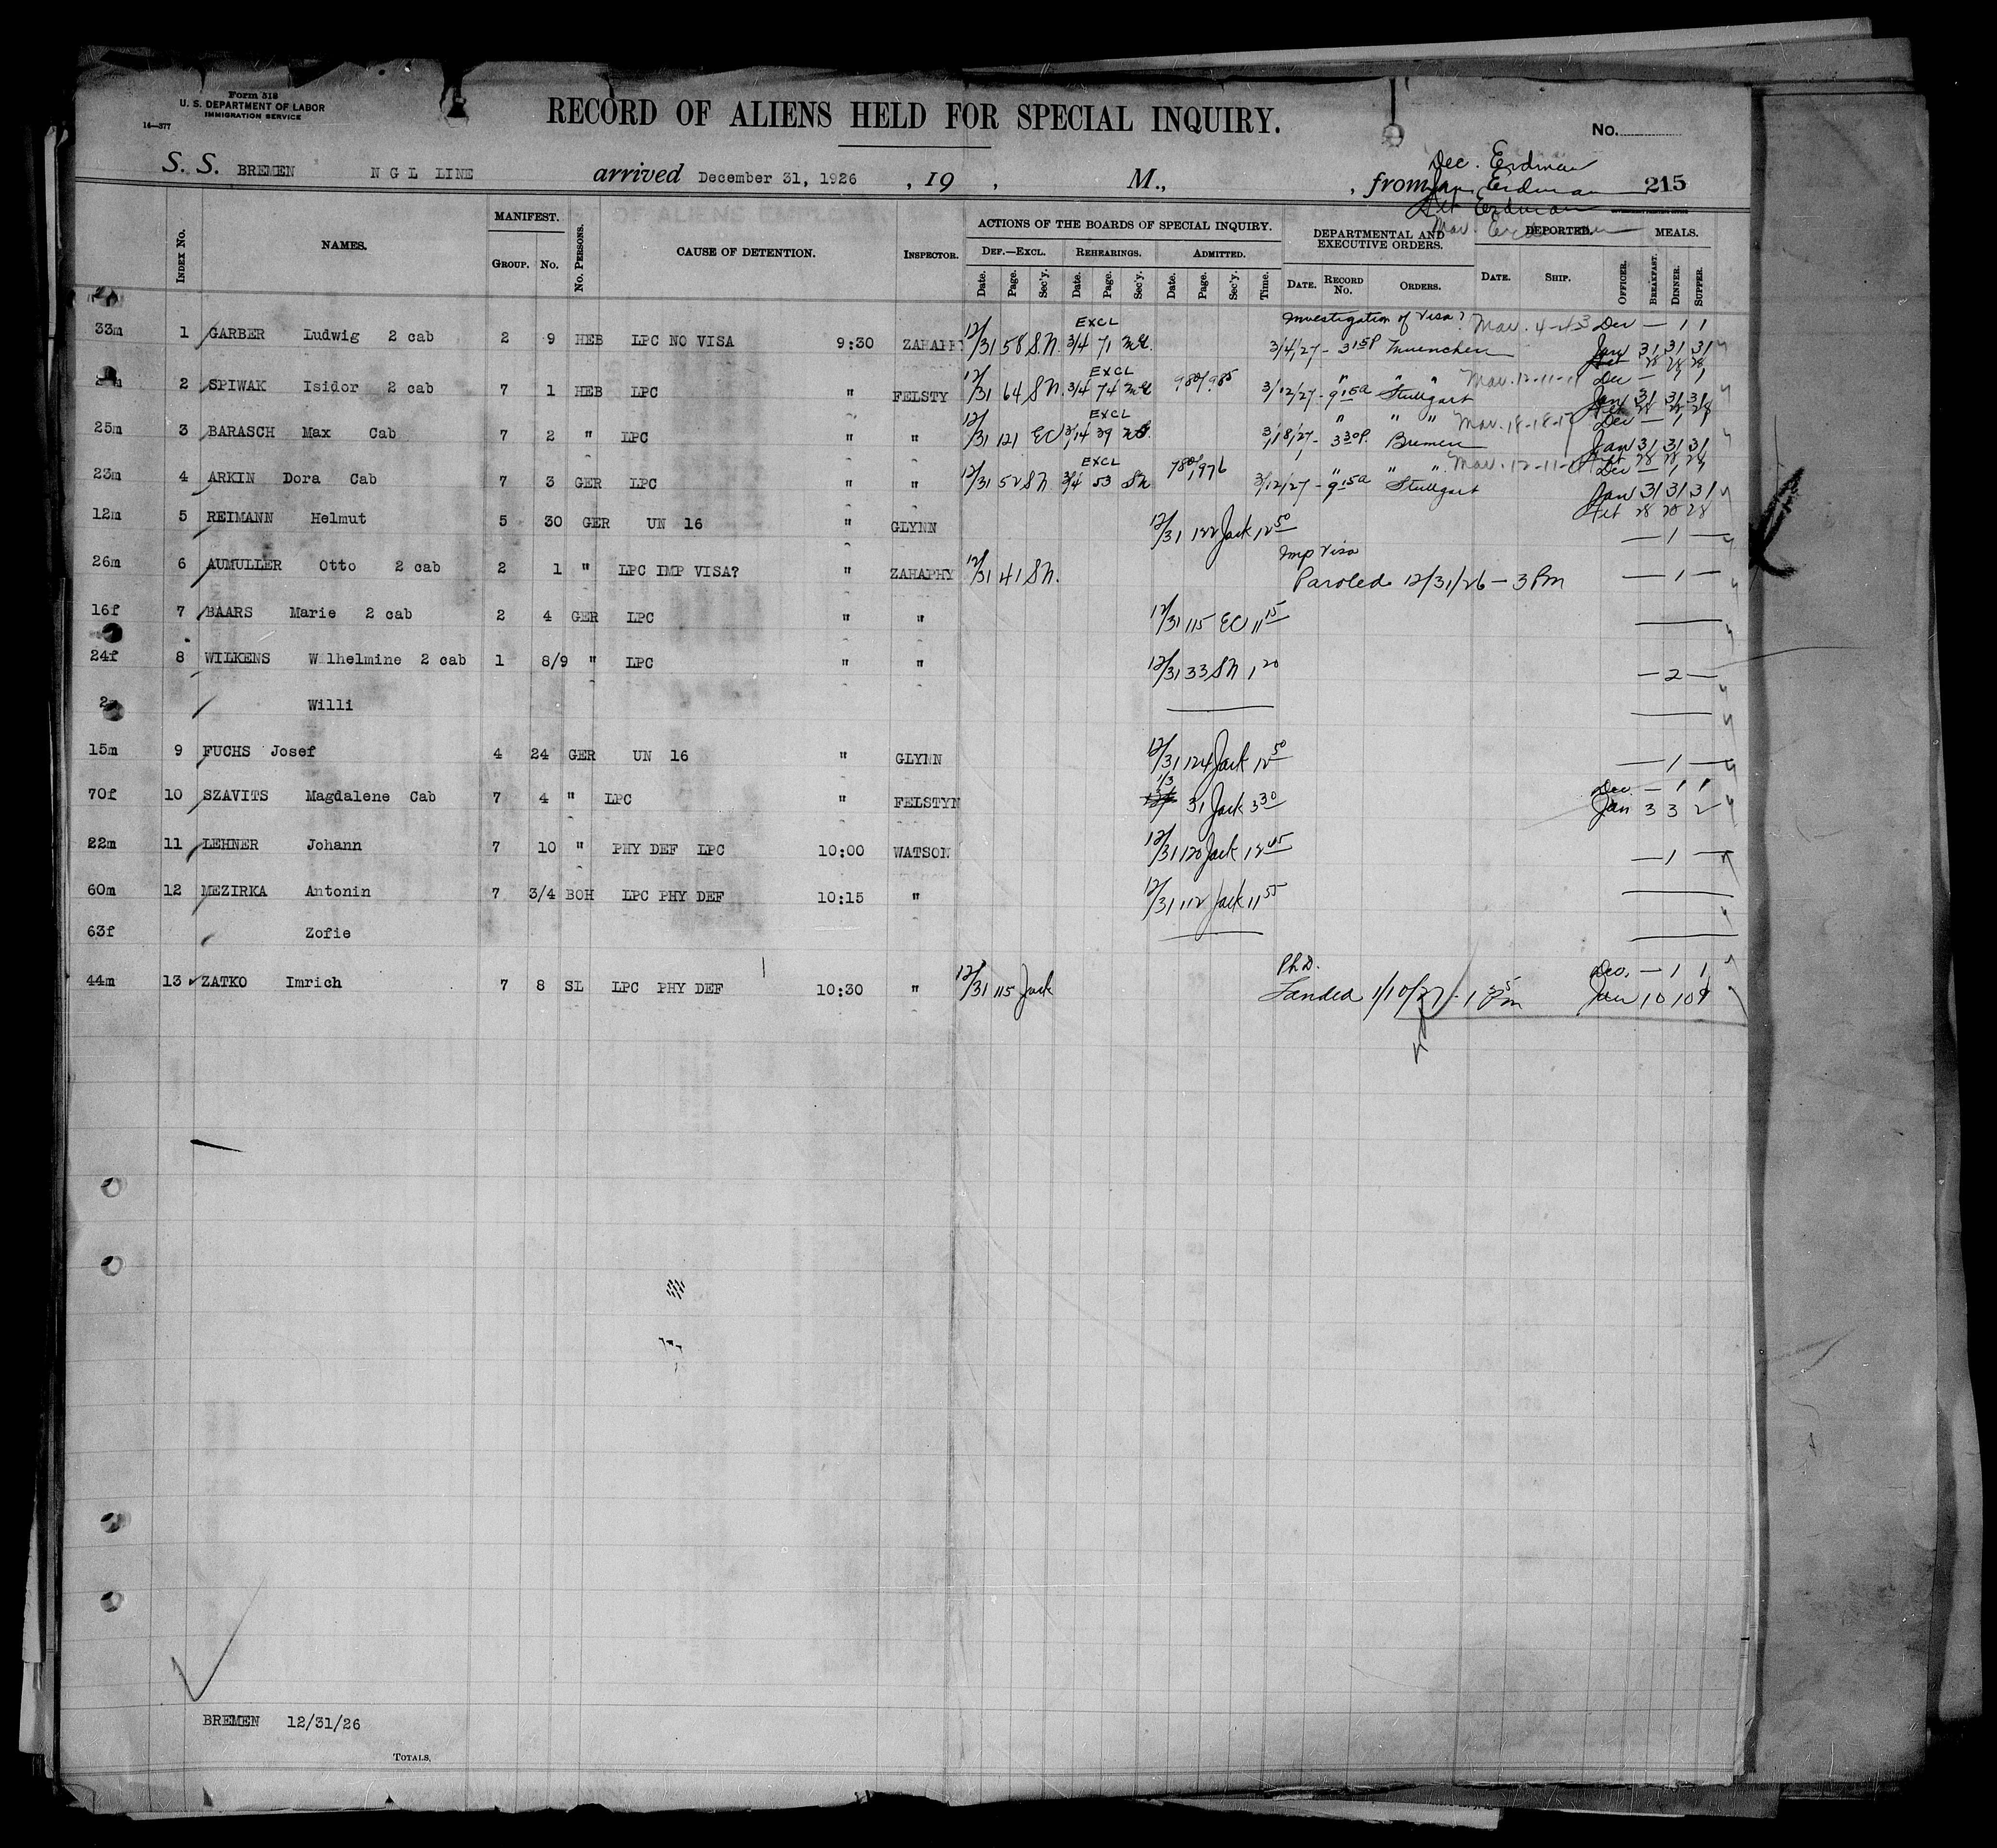 Form 518
U. S. DEPARTMENT OF LABOR
IMMIGRATION SERVICE
14—377
RECORD OF ALIENS HELD FOR SPECIAL INQUIRY.
No.
Dec. Erdman
S. S. BREMEN N G L LINE arrived December 31, 1926 , 19 , M., , from Jan. Erdman 215
Erdman
Mar. Erdman
INDEX No. NAMES. MANIFEST. GROUP. No. No. PERSONS. CAUSE OF DETENTION. INSPECTOR. ACTIONS OF THE BOARDS OF SPECIAL INQUIRY. DEPARTMENTAL AND EXECUTIVE ORDERS. DEPORTED. MEALS.
DEF.—EXCL. REHEARINGS. ADMITTED.
Date. Page. Sec'y. Date. Page. Sec'y. Date. Page. Sec'y. Time. DATE. RECORD No. ORDERS. DATE. SHIP. OFFICER. BREAKFAST. DINNER. SUPPER.
EXCL Investigation of Visa? Mar. 4-4-3 Dec — 1 1
33m 1 GARBER Ludwig 2 cab 2 9 HEB LPC NO VISA 9:30 12/31 58 S.N. 3/4 71 3/4/27 - 3 15P Muenchen Jan 31 31 31
28 28 28
EXCL " " " Mar. 12-11-11 Dec — 1 1
2 SPIWAK Isidor 2 cab 7 1 HEB LPC " FELSTY 12/31 64 S N. 3/4 74 980/985 3/12/27 - 9 15a Stuttgart Jan 31 31 31
28 28 28
EXCL " " " Mar. 18-18-17 Dec — 1 1
25m 3 BARASCH Max Cab 7 2 " LPC " " 12/31 121 EC 3/14 39 3/18/27 - 3 30P. Bremen Jan 31 31 31
28 28 28
EXCL " " " Mar. 12-11-11 Dec — 1 1
23m 4 ARKIN Dora Cab 7 3 GER LPC " " 12/31 52 S N. 3/4 53 S N 980/976 3/12/27 - 9 15a Stuttgart Jan 31 31 31
28 28 28
12m 5 REIMANN Helmut 5 30 GER UN 16 " GLYNN 12/31 122 Jack 12 50 — 1 —
Imp Visa
26m 6 AUMULLER Otto 2 cab 2 1 " LPC IMP VISA? " ZAHAPHY 12/31 41 S N. Paroled 12/31/26 — 3 Pm — 1 —
16f 7 BAARS Marie 2 cab 2 4 GER LPC " " 12/31 115 EC 11 15
24f 8 WILKENS Wilhelmine 2 cab 1 8/9 " LPC " " 12/31 33 S N 1 20 — 2 —
Willi
15m 9 FUCHS Josef 4 24 GER UN 16 " GLYNN 12/31 124 Jack 12 50 — 1 —
Dec. — 1 1
70f 10 SZAVITS Magdalene Cab 7 4 " LPC " FELSTYN 1/3 31 Jack 3 30 Jan 3 3 2
22m 11 LEHNER Johann 7 10 " PHY DEF LPC 10:00 WATSON 12/31 120 Jack 12 45 — 1 —
60m 12 MEZIRKA Antonin 7 3/4 BOH LPC PHY DEF 10:15 " 12/31 112 Jack 11 55
63f Zofie
Ph.D. Dec. — 1 1
44m 13 ZATKO Imrich 7 8 SL LPC PHY DEF 10:30 " 12/31 115 Jack Landed 1/10/27 - 1 25 Pm Jan 10 10 9
BREMEN 12/31/26
TOTALS,